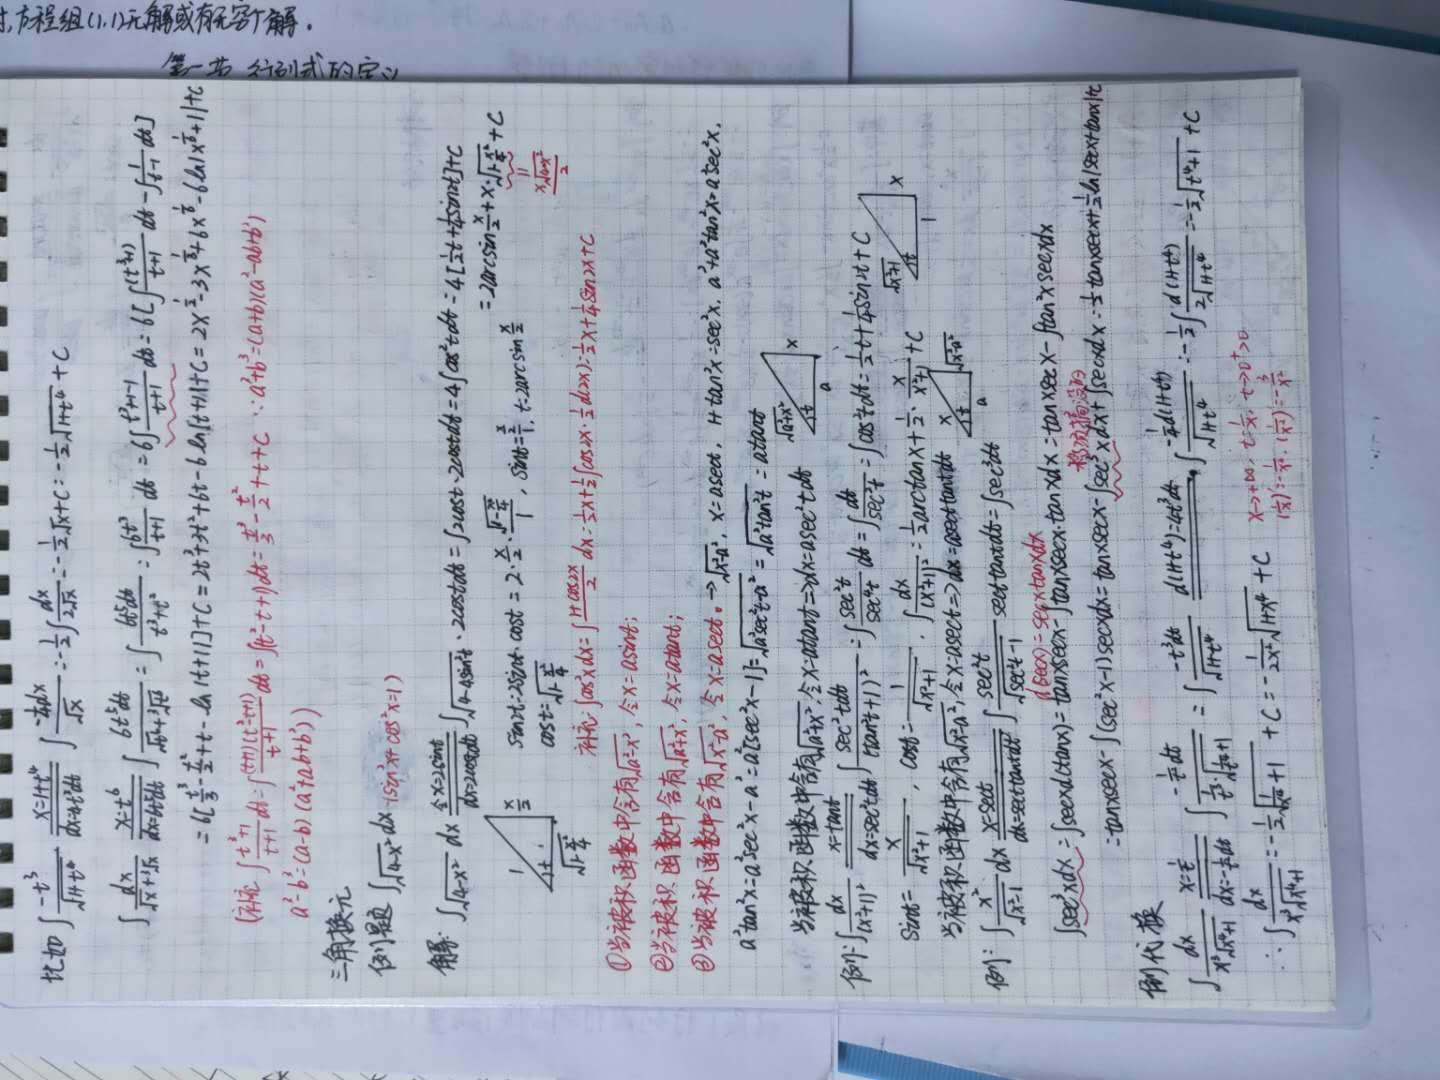 方程组(1.1)无解或有无穷个解.
第一节 行列式的定义
比如 ∫ -t³/√(1+t⁴) x=1+t⁴ dx=4t³dt ∫ -¼dx/√x = -½∫ dx/2√x = -½√x+C = -½√(1+t⁴)+C
∫ dx/(√x+³√x) x=t⁶ dx=6t⁵dt ∫ 6t⁵dt/(√t⁶+³√t⁶) = ∫ 6t⁵dt/(t³+t²) = ∫ 6t³/(t+1) dt = 6∫ (t³+1-1)/(t+1) dt = 6[∫ (t³+1)/(t+1) dt - ∫ 1/(t+1) dt]
= 6[t³/3 - t²/2 + t - ln|t+1|]+C = 2t³-3t²+6t-6ln|t+1|+C = 2x^½-3x^⅓+6x^(1/6)-6ln|x^(1/6)+1|+C
(补充 ∫ (t³+1)/(t+1) dt = ∫ (t+1)(t²-t+1)/(t+1) dt = ∫(t²-t+1)dt = t³/3 - t²/2 + t + C ∵ a³+b³=(a+b)(a²-ab+b²)
a³-b³=(a-b)(a²+ab+b²))
三角换元
例题 ∫√(4-x²) dx (sin²x+cos²x=1)
解: ∫√(4-x²) dx 令x=2sint dx=2costdt ∫√(4-4sin²t)·2costdt = ∫2cost·2costdt = 4∫cos²tdt = 4[½t+¼sin2t]+C
= 2arcsin x/2 + x·√(1-x²/4) + C
x√(4-x²)/2
1 x/2 t √(1-x²/4)
sin2t=2sint·cost = 2·x/2·√(1-x²/4)/1, sint=(x/2)/1, t=arcsin x/2
cost=√(1-x²/4)
补充 ∫cos²xdx = ∫ (1+cos2x)/2 dx = ½x+½∫cos2x·½d(2x) = ½x+¼sin2x+C
①当被积函数中含有√(a²-x²), 令x=asint;
②当被积函数中含有√(a²+x²), 令x=atant;
③当被积函数中含有√(x²-a²), 令x=asect. → √(x²-a²), x=asect, 1+tan²x=sec²x. a²+a²tan²x=a²sec²x.
a²tan²x=a²sec²x-a²=a²[sec²x-1]=√(a²sec²t-a²)=√(a²tan²t)=atant
当被积函数中含有√(a²+x²), 令x=atant⇒dx=asec²tdt
√(a²+x²) x t a
例: ∫ dx/(x²+1)² x=tant dx=sec²tdt ∫ sec²tdt/(tan²t+1)² = ∫ sec²t/sec⁴t dt = ∫ dt/sec²t = ∫cos²tdt = ½t+¼sin2t+C
√(x²+1) x t 1
sint= x/√(x²+1), cost= 1/√(x²+1). ∫ dx/(x²+1)² = ½arctanx+½·x/(x²+1)+C
当被积函数中含有√(x²-a²), 令x=asect⇒dx=asect tantdt
x √(x²-a²) t a
例: ∫ x²/√(x²-1) dx x=sect dx=sect tantdt ∫ sec²t/√(sec²t-1) sect tantdt = ∫sec³tdt
d(secx)=secxtanxdx
∫sec³xdx=∫secxd(tanx)=tanxsecx-∫tanxsecx·tanxdx=tanxsecx-∫tan²xsecxdx
=tanxsecx-∫(sec²x-1)secxdx=tanxsecx-∫sec³xdx+∫secxdx=½tanxsecx+½ln|secx+tanx|+C
例代换
∫ dx/(x³√(x⁴+1)) x=1/t dx=-1/t²dt ∫ -1/t²dt / (1/t³·√(1/t⁴+1)) = ∫ -t³dt/√(1+t⁴) d(1+t⁴)=4t³dt. ∫ -¼d(1+t⁴)/√(1+t⁴) = -½∫ d(1+t⁴)/2√(1+t⁴) = -½√(t⁴+1)+C
∴ ∫ dx/(x³√(x⁴+1)) = -½√(1/x⁴+1)+C = -1/2x²√(1+x⁴)+C
x→+∞, t=1/x, t→0⁺>0